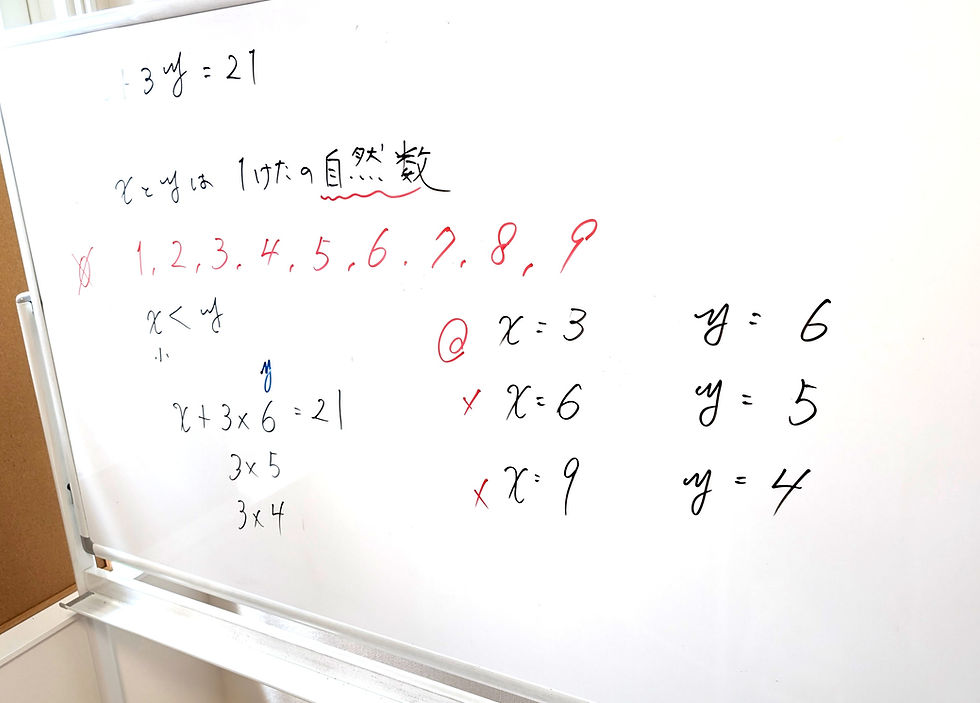 +3y=21
xとyは1けたの自然数
0 1, 2, 3, 4, 5, 6, 7, 8, 9
x<y
小
y
x+3×6=21
3×5
3×4
x=3 y=6
× x=6 y=5
× x=9 y=4